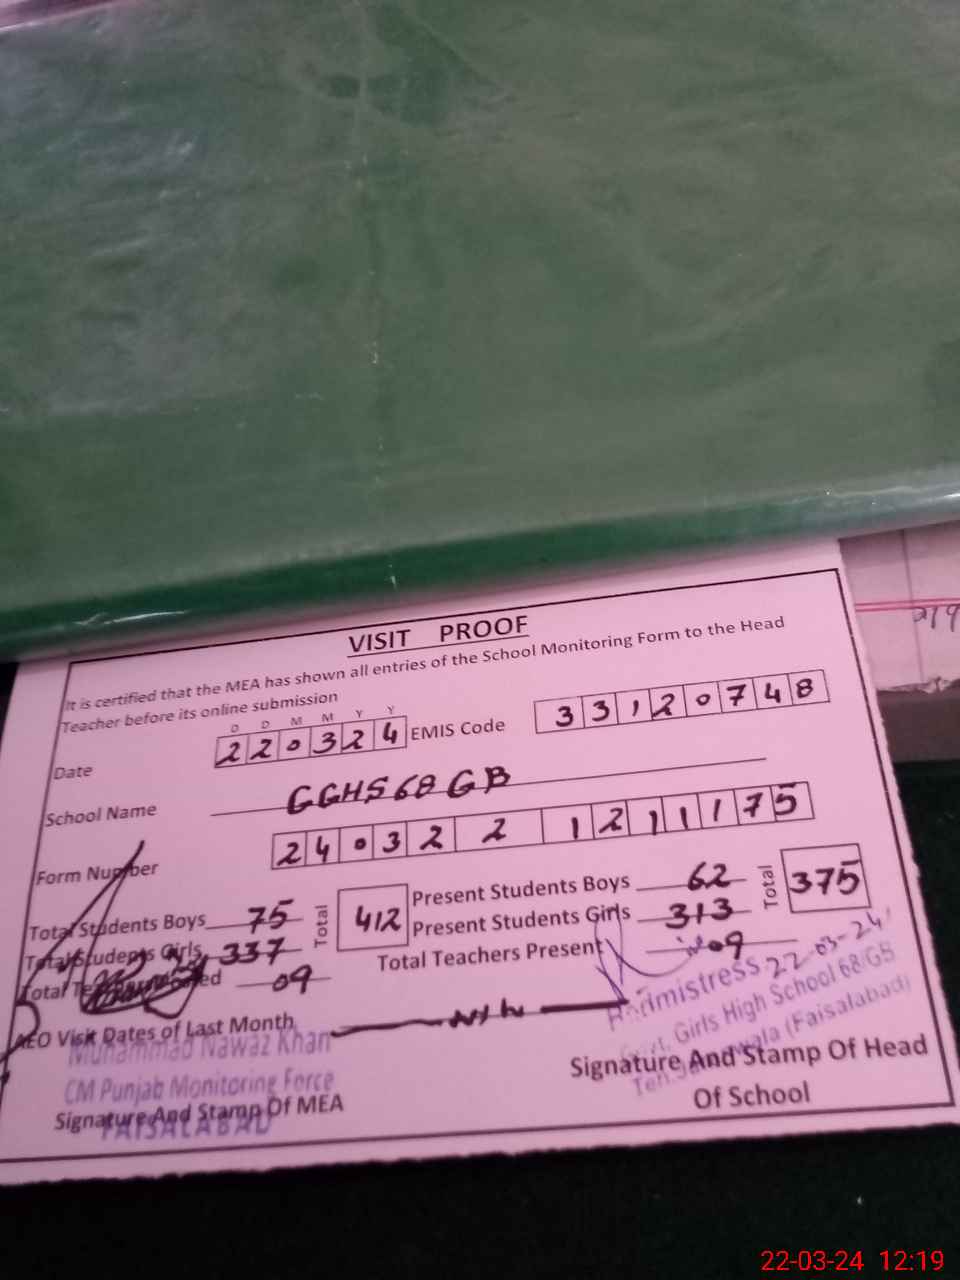 VISIT PROOF
It is certified that the MEA has shown all entries of the School Monitoring Form to the Head
Teacher before its online submission
D D M M Y Y
Date 220324 EMIS Code 33120748
School Name GGHS 68 GB
Form Number 2403221211175
Total Students Boys 75 Total 412 Present Students Boys 62 Total 375
Total Students Girls 337 Present Students Girls 313
Total 09 Total Teachers Present 09
AEO Visit Dates of Last Month
Muhammad Nawaz Khan
CM Punjab Monitoring Force
FAISALABAD
Signature And Stamp Of MEA
22-03-24
Girls High School 68/GB
(Faisalabad)
Signature And Stamp Of Head
Of School
219
22-03-24 12:19